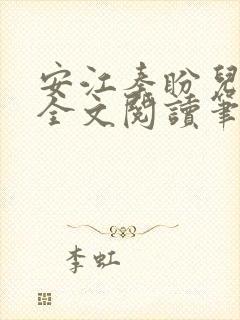 安江秦盼兒
全文閱讀筆
李虹